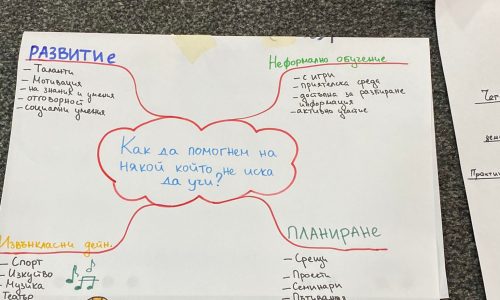 РАЗВИТИЕ
- Таланти
- Мотивация
- на знания и умения
- отговорност
- социални умения
Неформално обучение
- с игри
- приятелска среда
- достъпна за разбиране
информация
- активно учатие
Как да помогнем на
някой който не иска
да учи?
Извънкласни дейн.
- Спорт
- Изкуство
- Музика
Театър
ПЛАНИРАНЕ
- Срещи
- Проекти
- Семинари
- Пътувания